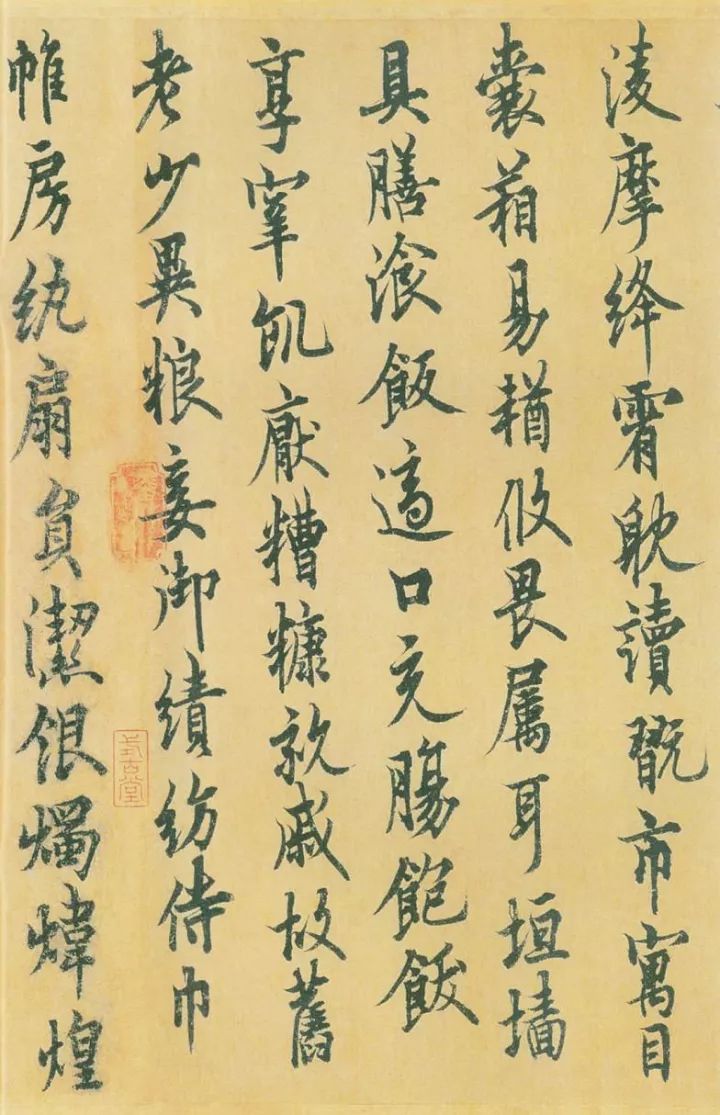 淩摩絳霄耽讀翫市寓目
囊葙易輶攸畏属耳垣墻
具膳湌飯適口充腸飽飫
享宰飢厭糟糠親戚故舊
老少異粮妾御績紡侍巾
帷房紈扇員潔銀燭煒煌
式古堂